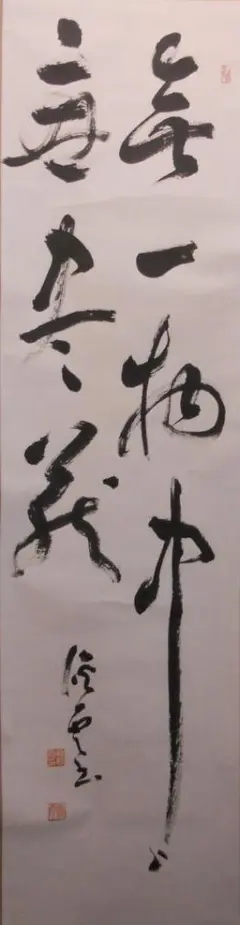 無一物中
無尽蔵